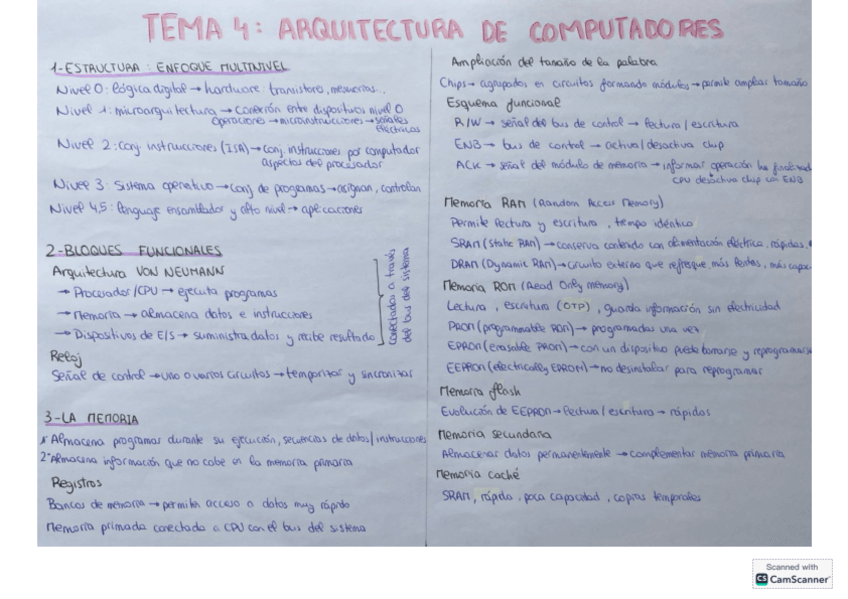 TEMA 4: ARQUITECTURA DE COMPUTADORES
1-ESTRUCTURA: ENFOQUE MULTINIVEL
Nivel 0: Lógica digital → hardware: transistores, memorias...
Nivel 1: microarquitectura → conexión entre dispositivos nivel 0
operaciones → microinstrucciones → señales
eléctricas
Nivel 2: Conj. instrucciones (ISA) → conj. instrucciones por computador
aspectos del procesador
Nivel 3: Sistema operativo → conj de programas → asignan, controlan
Nivel 4,5: Lenguaje ensamblador y alto nivel → aplicaciones
2-BLOQUES FUNCIONALES
Arquitectura VON NEUMANN
→ Procesador/CPU → ejecuta programas
→ Memoria → almacena datos e instrucciones
→ Dispositivos de E/S → suministra datos y recibe resultado
conectados a través
del bus del sistema
Reloj
Señal de control → uno o varios circuitos → temporizar y sincronizar
3-LA MEMORIA
1º Almacena programas durante su ejecución, secuencias de datos/instrucciones
2º Almacena información que no cabe en la memoria primaria
Registros
Bancos de memoria → permiten acceso a datos muy rápido
Memoria primaria conectada a CPU con el bus del sistema
Ampliación del tamaño de la palabra
Chips → agrupados en circuitos formando módulos → permite ampliar tamaño
Esquema funcional
R/W → señal del bus de control → lectura/escritura
ENB → bus de control → activa/desactiva chip
ACK → señal del módulo de memoria → informar operación ha
CPU desactiva chip con ENB
Memoria RAM (Random Access Memory)
Permite lectura y escritura, tiempo idéntico
SRAM (Static RAM) → conserva contenido con alimentación eléctrica, rápidas,
DRAM (Dynamic RAM) → circuito externo que refresque, más lentas, más
Memoria ROM (Read Only memory)
Lectura, escritura (OTP), guarda información sin electricidad
PROM (programmable ROM) → programadas una vez
EPROM (erasable PROM) → con un dispositivo puede borrarse y
EEPROM (electrically EPROM) → no desinstalar para reprogramar
Memoria flash
Evolución de EEPROM → lectura/escritura → rápidos
Memoria secundaria
Almacenar datos permanentemente → complementar memoria primaria
Memoria caché
SRAM, rápida, poca capacidad, copias temporales
Scanned with
CS CamScanner